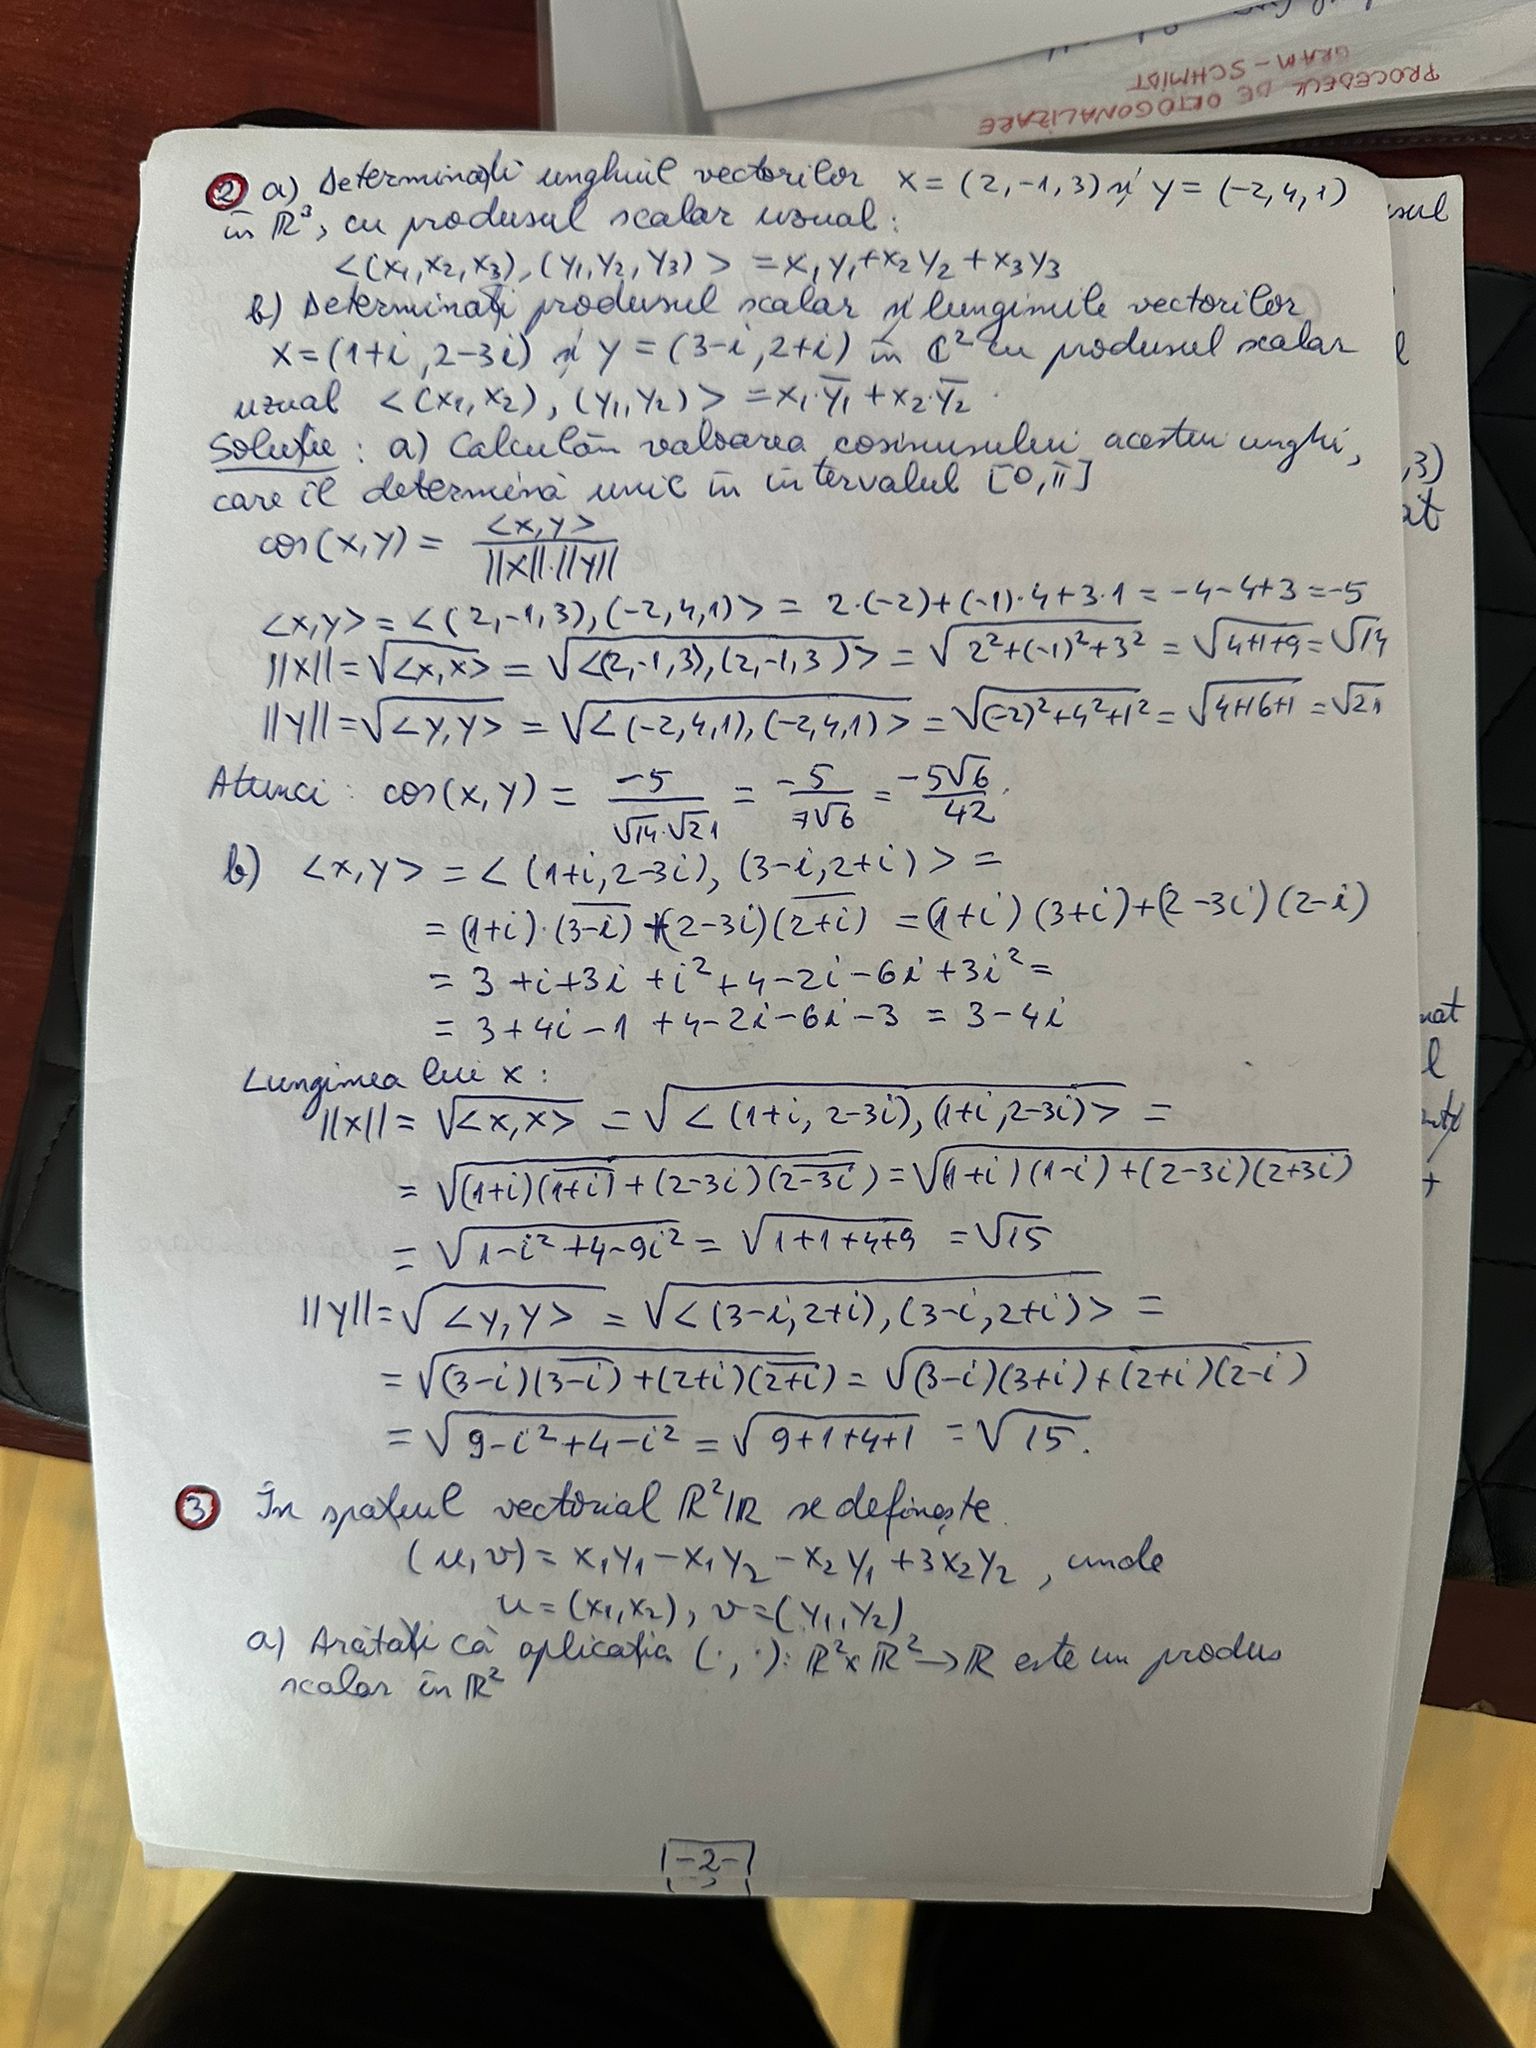 PROCEDEUL DE ORTOGONALIZARE
GRAM-SCHMIDT
② a) Determinați unghiul vectorilor x = (2,-1,3) și y = (-2,4,1)
în ℝ³, cu produsul scalar uzual:
<(x₁,x₂,x₃), (y₁,y₂,y₃)> = x₁y₁+x₂y₂+x₃y₃
b) Determinați produsul scalar și lungimile vectorilor
x=(1+i, 2-3i) și y=(3-i, 2+i) în ℂ² cu produsul scalar
uzual <(x₁,x₂), (y₁,y₂)> = x₁·y̅₁ + x₂·y̅₂.
Soluție: a) Calculăm valoarea cosinusului acestui unghi,
care îl determină unic în intervalul [0,π]
cos(x,y) = <x,y> / ||x||·||y||
<x,y> = <(2,-1,3),(-2,4,1)> = 2·(-2)+(-1)·4+3·1 = -4-4+3 = -5
||x|| = √<x,x> = √<(2,-1,3),(2,-1,3)> = √(2²+(-1)²+3²) = √(4+1+9) = √14
||y|| = √<y,y> = √<(-2,4,1),(-2,4,1)> = √((-2)²+4²+1²) = √(4+16+1) = √21
Atunci: cos(x,y) = -5/(√14·√21) = -5/(7√6) = -5√6/42.
b) <x,y> = <(1+i,2-3i), (3-i,2+i)> =
= (1+i)·(3̅-̅i̅)+(2-3i)(2̅+̅i̅) = (1+i)(3+i)+(2-3i)(2-i)
= 3+i+3i+i²+4-2i-6i+3i² =
= 3+4i-1+4-2i-6i-3 = 3-4i
Lungimea lui x:
||x|| = √<x,x> = √<(1+i, 2-3i),(1+i,2-3i)> =
= √((1+i)(1̅+̅i̅)+(2-3i)(2̅-̅3̅i̅)) = √((1+i)(1-i)+(2-3i)(2+3i))
= √(1-i²+4-9i²) = √(1+1+4+9) = √15
||y|| = √<y,y> = √<(3-i,2+i),(3-i,2+i)> =
= √((3-i)(3̅-̅i̅)+(2+i)(2̅+̅i̅)) = √((3-i)(3+i)+(2+i)(2-i))
= √(9-i²+4-i²) = √(9+1+4+1) = √15.
③ În spațiul vectorial ℝ²/ℝ se definește
(u,v) = x₁y₁-x₁y₂-x₂y₁+3x₂y₂, unde
u=(x₁,x₂), v=(y₁,y₂)
a) Arătați că aplicația (·,·): ℝ²×ℝ²→ℝ este un produs
scalar în ℝ²
-2-